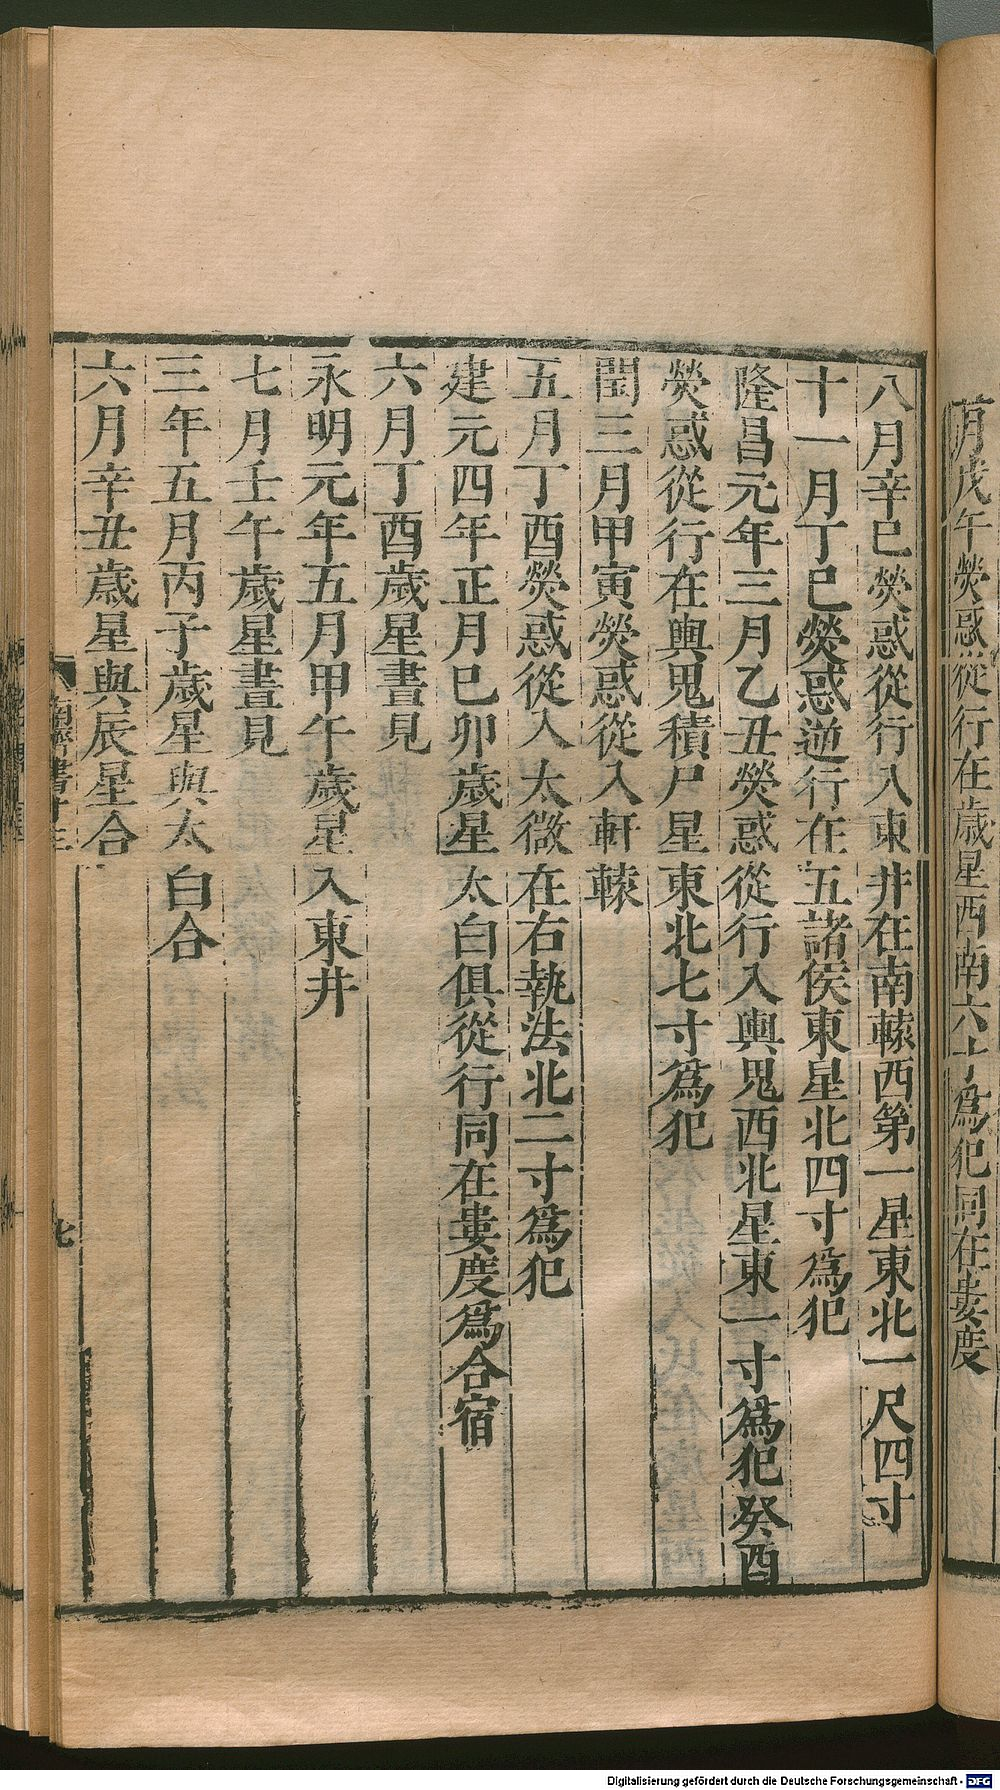 月戊午熒惑從行在歲星西南六寸爲犯同在婁度
八月辛巳熒惑從行入東井在南轅西第一星東北一尺四寸
十一月丁巳熒惑逆行在五諸侯東星北四寸爲犯
隆昌元年三月乙丑熒惑從行入輿鬼西北星東一寸爲犯癸酉
熒惑從行在輿鬼積尸星東北七寸爲犯
閏三月甲寅熒惑從入軒轅
五月丁酉熒惑從入太微在右執法北二寸爲犯
建元四年正月巳卯歲星太白俱從行同在婁度爲合宿
六月丁酉歲星晝見
永明元年五月甲午歲星入東井
七月壬午歲星晝見
三年五月丙子歲星與太白合
六月辛丑歲星與辰星合
南齊書十三
七
Digitalisierung gefördert durch die Deutsche Forschungsgemeinschaft - DFG